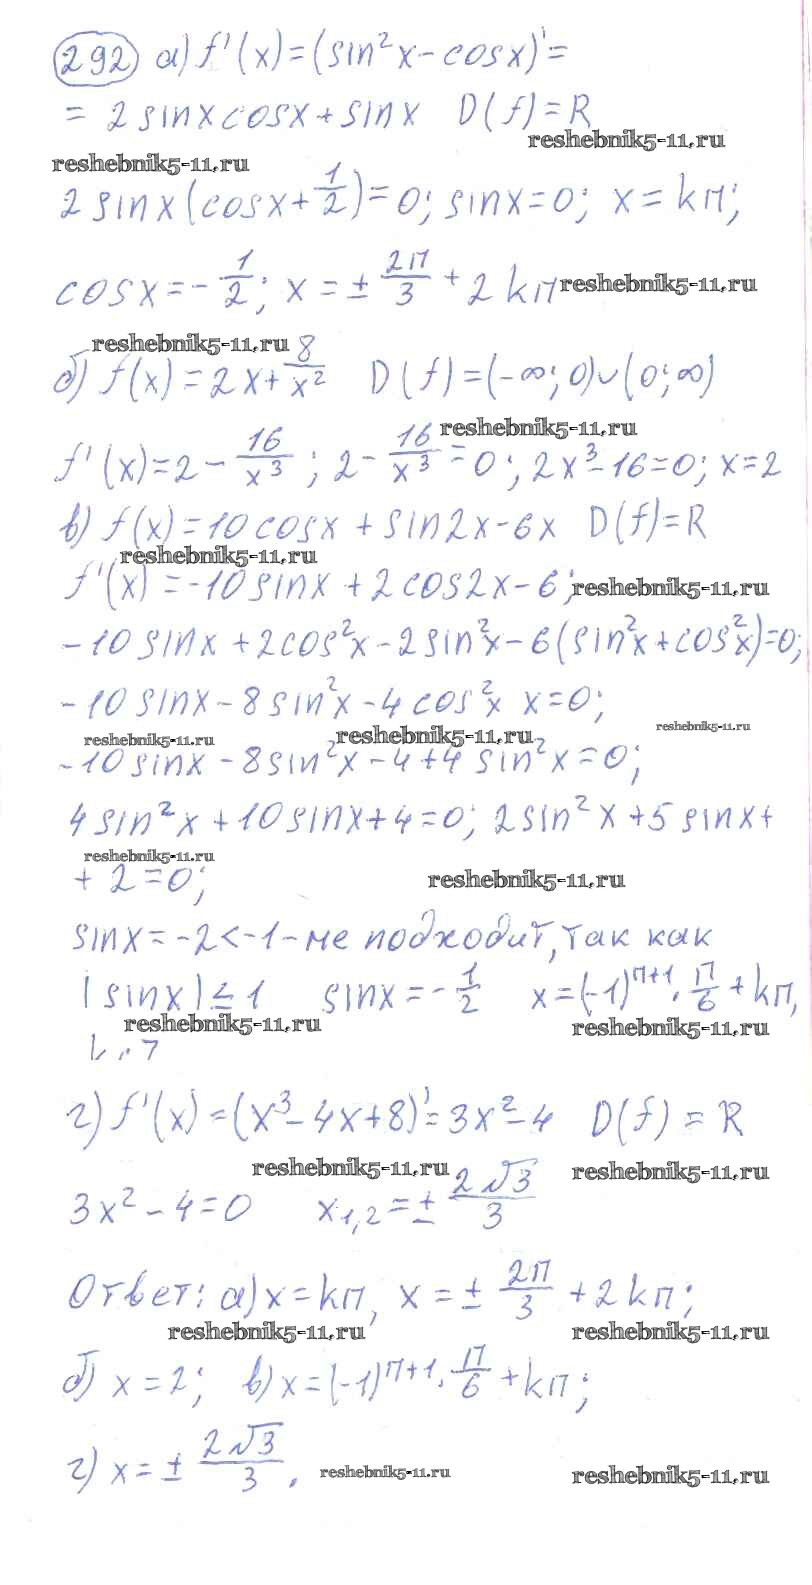 292 а) f'(x) = (sin²x – cosx)' =
= 2 sinx cosx + sinx D(f) = R
reshebnik5-11.ru
reshebnik5-11.ru
2 sinx (cosx + 1/2) = 0; sinx = 0; x = kп;
cosx = - 1/2; x = ± 2п/3 + 2kп
reshebnik5-11.ru
reshebnik5-11.ru
б) f(x) = 2x + 8/x² D(f) = (-∞; 0) ∪ (0; ∞)
reshebnik5-11.ru
f'(x) = 2 - 16/x³; 2 - 16/x³ = 0; 2x³ - 16 = 0; x = 2
в) f(x) = 10cosx + sin2x - 6x D(f) = R
reshebnik5-11.ru
f'(x) = -10sinx + 2cos2x - 6;
reshebnik5-11.ru
-10sinx + 2cos²x - 2sin²x - 6(sin²x + cos²x) = 0;
-10sinx - 8sin²x - 4cos²x x = 0;
reshebnik5-11.ru
reshebnik5-11.ru
reshebnik5-11.ru
-10sinx - 8sin²x - 4 + 4sin²x = 0;
4sin²x + 10sinx + 4 = 0; 2sin²x + 5sinx +
reshebnik5-11.ru
+ 2 = 0;
reshebnik5-11.ru
sinx = -2 < -1 - не подходит, так как
|sinx| ≤ 1 sinx = - 1/2 x = (-1)ⁿ⁺¹ · п/6 + kп,
reshebnik5-11.ru
reshebnik5-11.ru
г) f'(x) = (x³ - 4x + 8)' = 3x² - 4 D(f) = R
reshebnik5-11.ru
reshebnik5-11.ru
3x² - 4 = 0 x₁,₂ = ± 2√3/3
Ответ: а) x = kп, x = ± 2п/3 + 2kп;
reshebnik5-11.ru
reshebnik5-11.ru
б) x = 2; в) x = (-1)ⁿ⁺¹ · п/6 + kп;
г) x = ± 2√3/3.
reshebnik5-11.ru
reshebnik5-11.ru